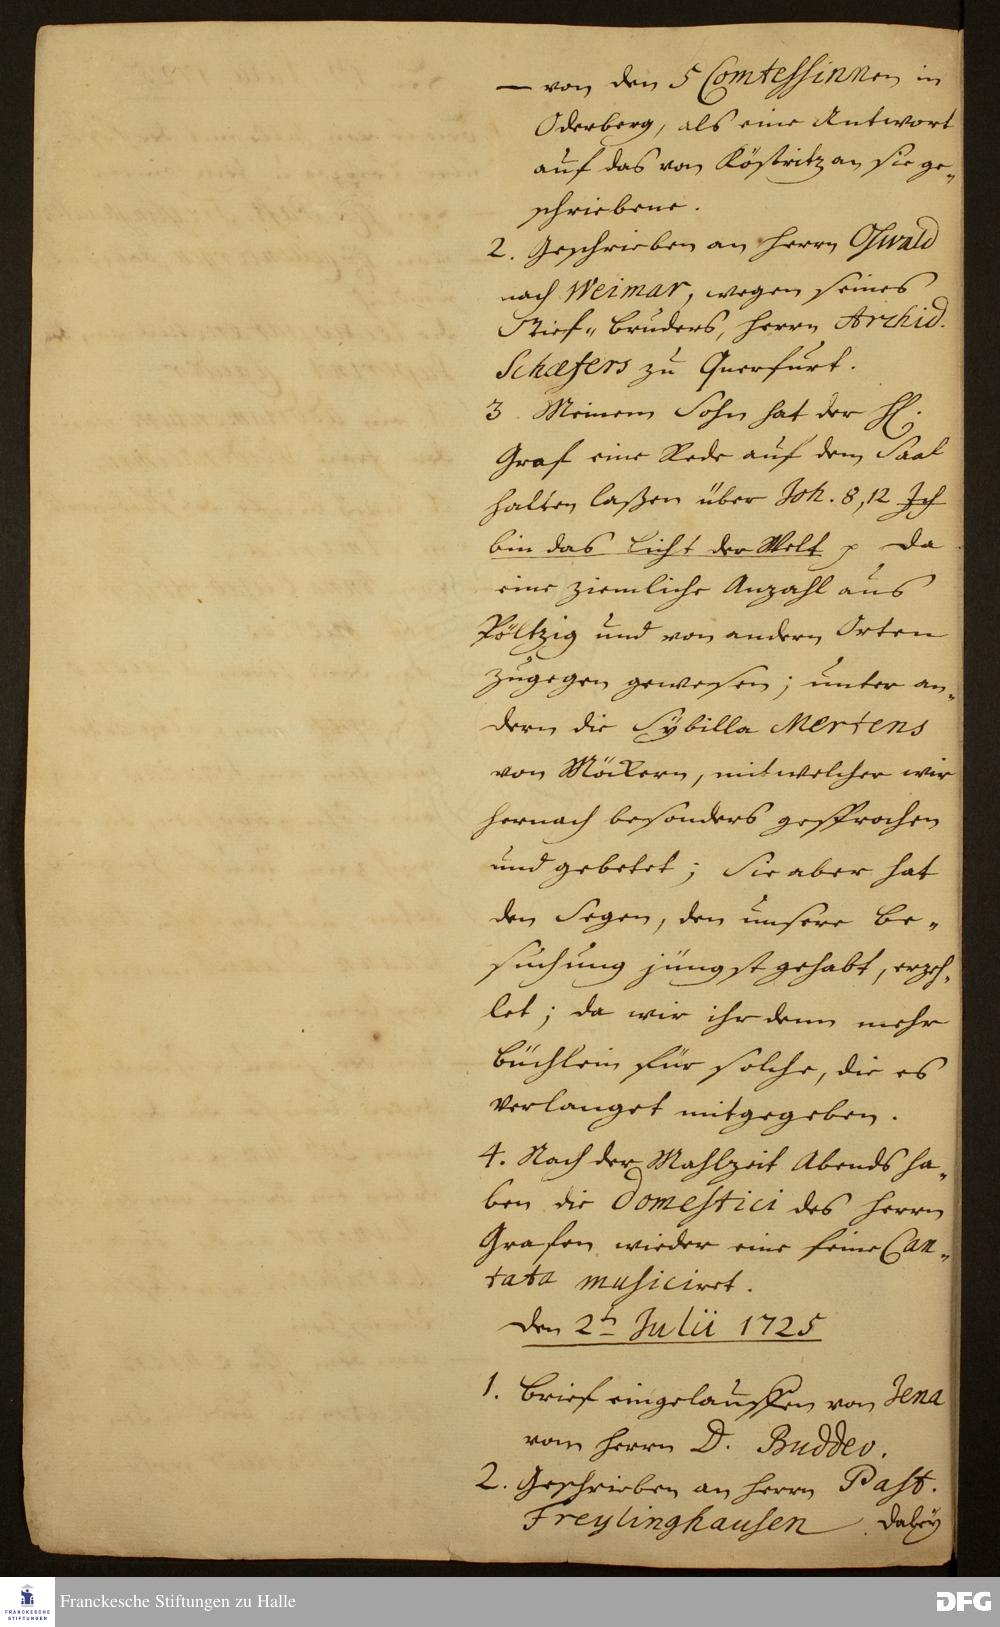 — von den 5 Comtessinnen in
Oderberg, als eine Antwort
auf das von Köstritz an sie ge„
schriebene.
2. Geschrieben an Herrn Oswald
nach Weimar, wegen seines
Stief„bruders, Herrn Archid.
Schæfers zu Querfurt.
3 Meinem Sohn hat der H.
Graf eine Rede auf dem Saal
halten laßen über Joh. 8,12 Ich
bin das Licht der Welt p Da
eine ziemliche Anzahl aus
Pöltzig und von andern Orten
zugegen gewesen; unter an„
dern die Sybilla Mertens
von Möckern, mit welcher wir
hernach besonders gesprochen
und gebetet; Sie aber hat
den Segen, den unsere Be„
suchung jüngst gehabt, erzeh„
let; da wir ihr denn mehr
Büchlein für solche, die es
verlanget mitgegeben.
4. Nach der Mahlzeit Abends ha„
ben die Domestici des Herrn
Grafen wieder eine feine Can„
tata musiciret.
Den 2t Julii 1725
1. Brief eingelauffen von Jena
vom Herrn D. Buddeo.
2. Geschrieben an Herrn Past.
Freylinghausen dabey
FRANCKESCHE STIFTUNGEN
Franckesche Stiftungen zu Halle
DFG